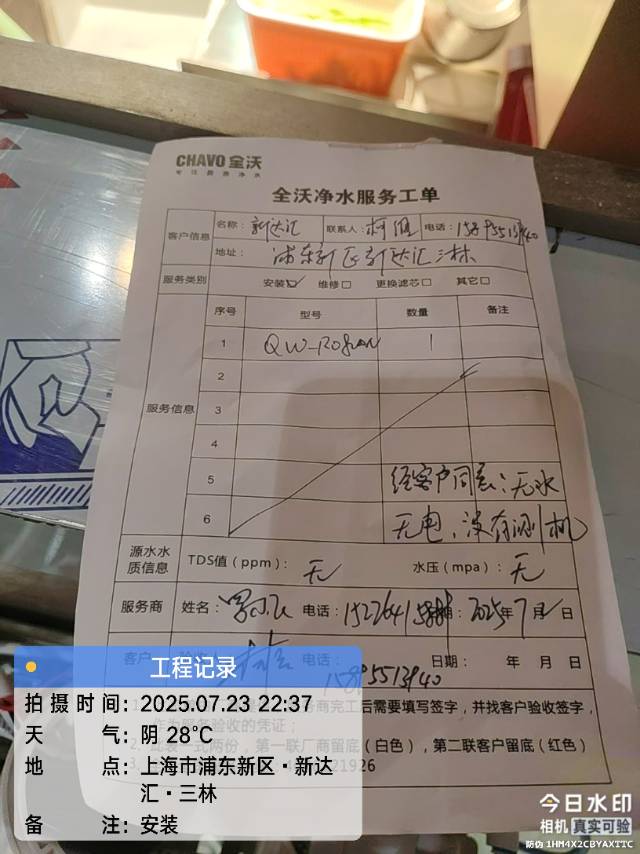 CHAVO 全沃
全沃净水服务工单
客户信息 名称: 新达汇 联系人: 电话:
地址: 浦东新区新达汇三林
服务类别 安装☑ 维修□ 更换滤芯□ 其它□
服务信息 序号 型号 数量 备注
1 1
2
3
4
5 经客户同意:无水
6 无电、没有测机
源水水质信息 TDS值(ppm): 无 水压(mpa): 无
服务商 姓名: 电话: 2025年7月 日
客户 电话: 15895513940 日期: 年 月 日
商完工后需要填写签字,并找客户验收签字,
作为服务验收的凭证;
式两份,第一联厂商留底(白色),第二联客户留底(红色)
21926
工程记录
拍摄时间: 2025.07.23 22:37
天气: 阴 28℃
地点: 上海市浦东新区·新达
汇·三林
备注: 安装
今日水印
相机 真实可验
防伪 1HM4X2CBYAXTTC